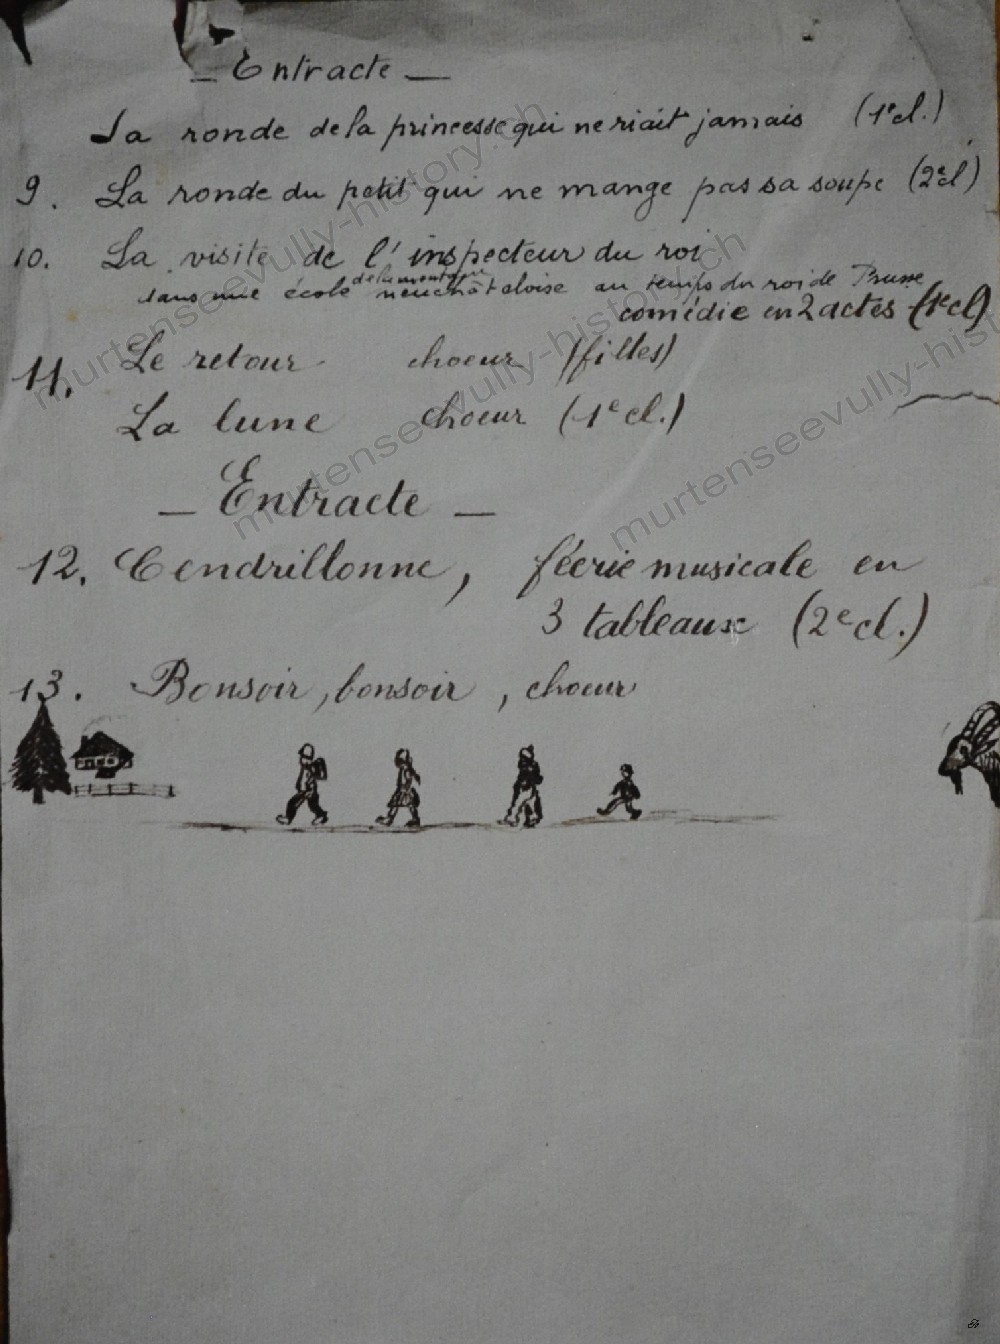 — Entracte —
La ronde de la princesse qui ne riait jamais (1e cl.)
9. La ronde du petit qui ne mange pas sa soupe (2e cl)
10. La visite de l'inspecteur du roi
de la montagne
dans une école neuchâteloise au temps du roi de Prusse
comédie en 2 actes (1e cl)
11. Le retour choeur (filles)
La lune choeur (1e cl.)
— Entracte —
12. Cendrillonne, féerie musicale en
3 tableaux (2e cl.)
13. Bonsoir, bonsoir, choeur
murtenseevully-history.ch
murtenseevully-history.ch
murtenseevully-hist